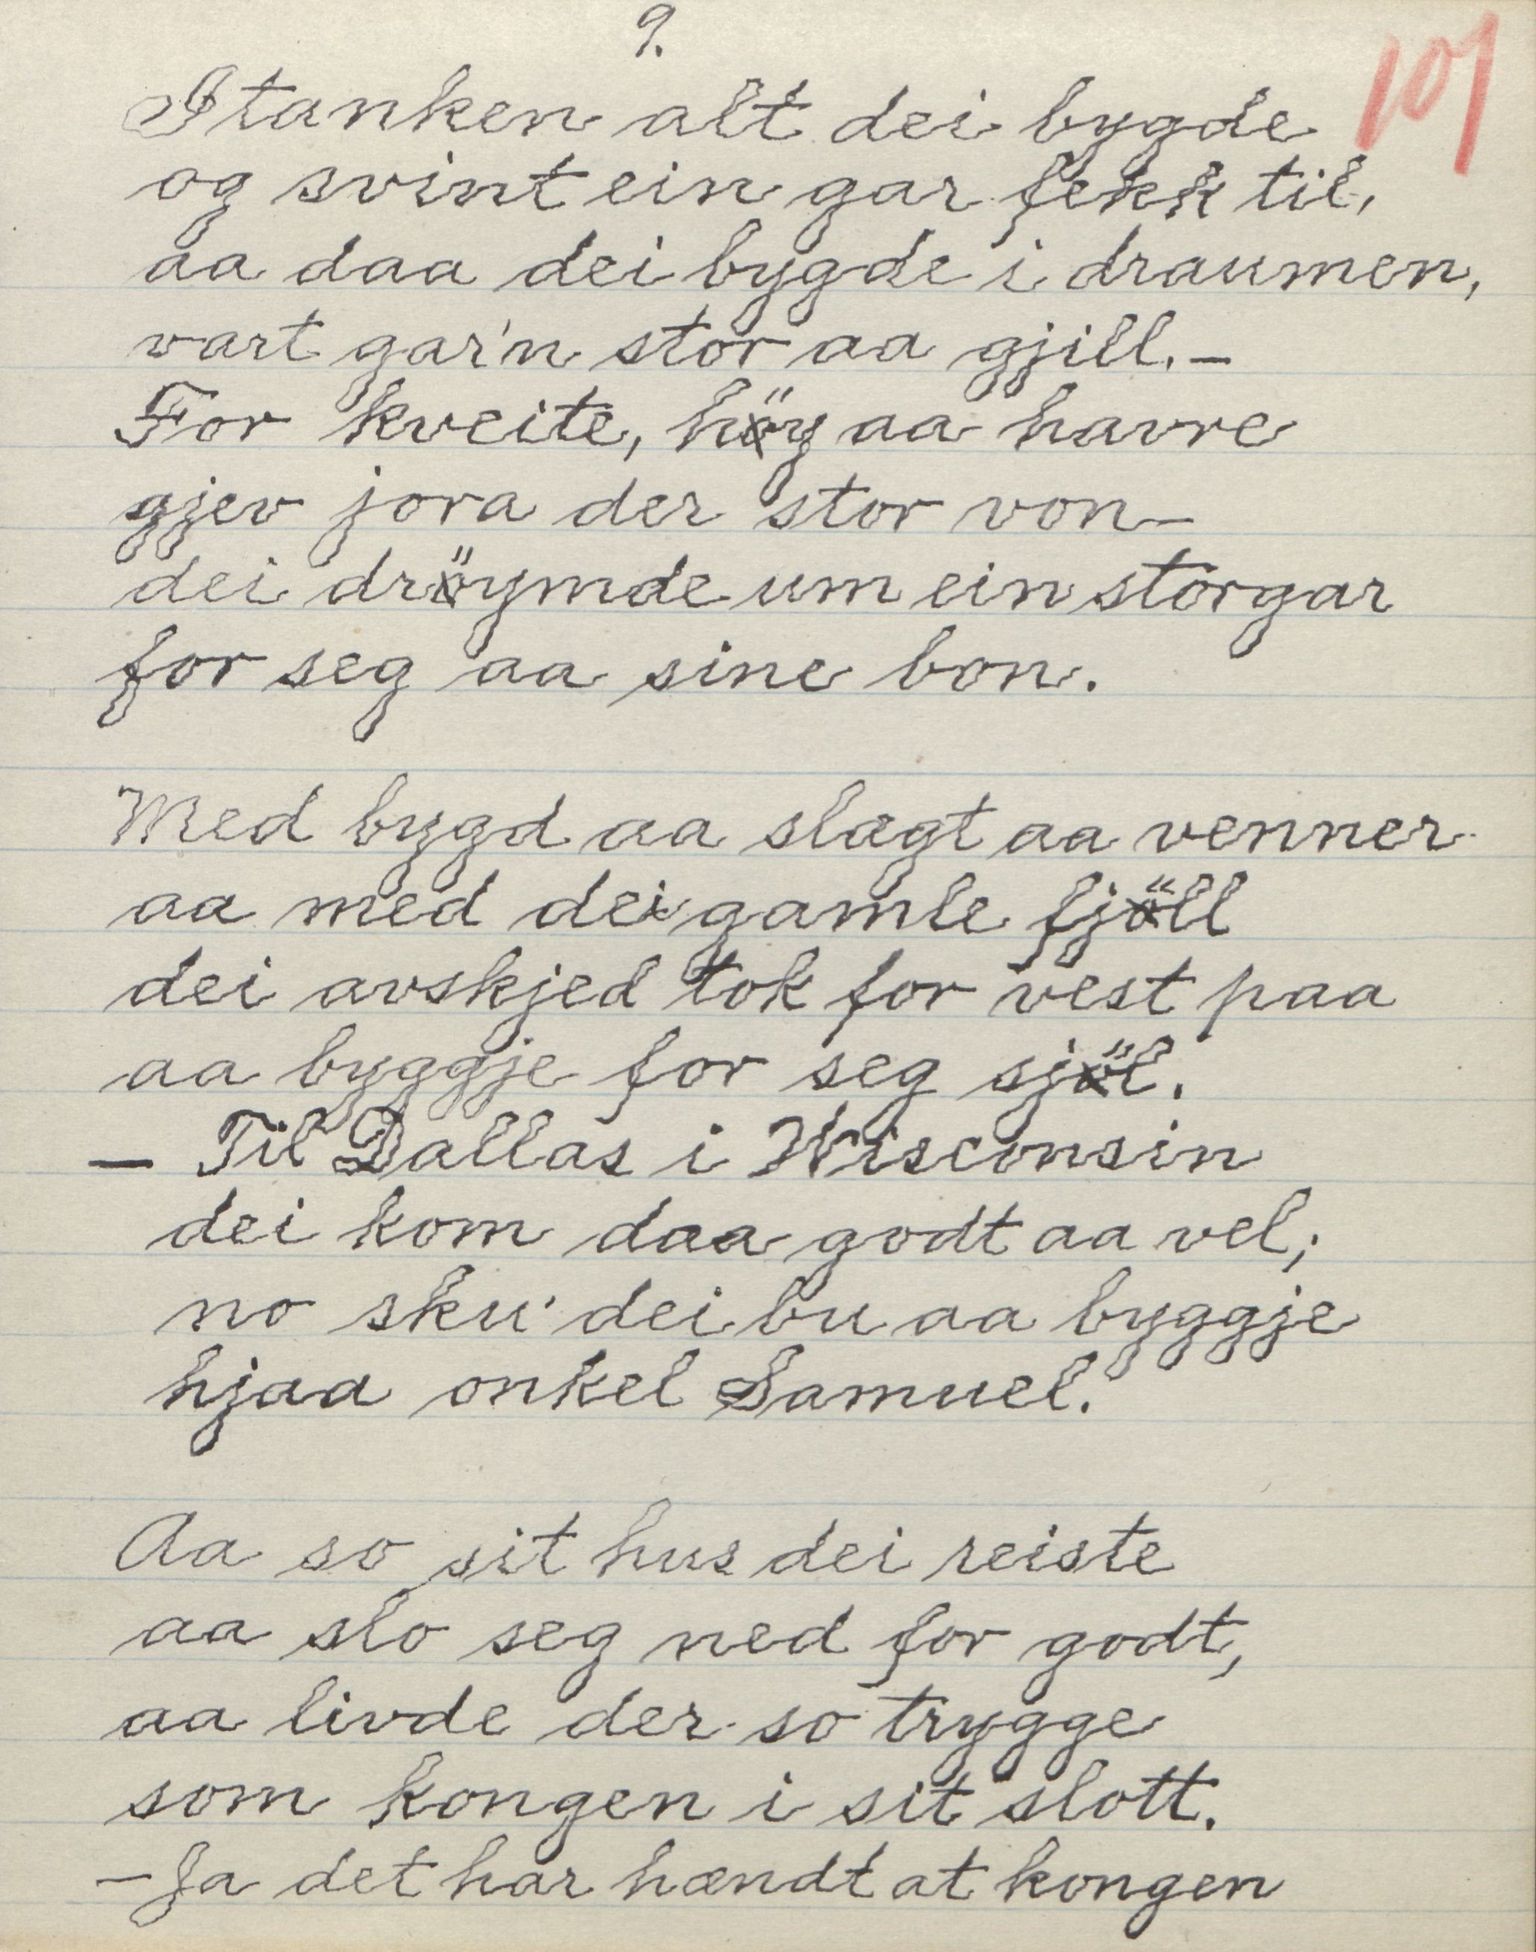 9.
101
I tanken alt dei bygde
og svint ein gar fekk til,
aa daa dei bygde i draumen,
vart gar'n stor aa gjill. –
For kveite, höy aa havre
gjev jora der stor von –
dei dröymde um ein storgar
for seg aa sine bon.
Med bygd aa slagt aa venner
aa med dei gamle fjöll
dei avskjed tok for vest paa
aa byggje for seg sjöl.
– Til Dallas i Wisconsin
dei kom daa godt aa vel;
no sku' dei bu aa byggje
hjaa onkel Samuel.
Aa so sit hus dei reiste
aa slo seg ned for godt,
aa livde der so trygge
som kongen i sit slott.
– Ja det har hændt at kongen